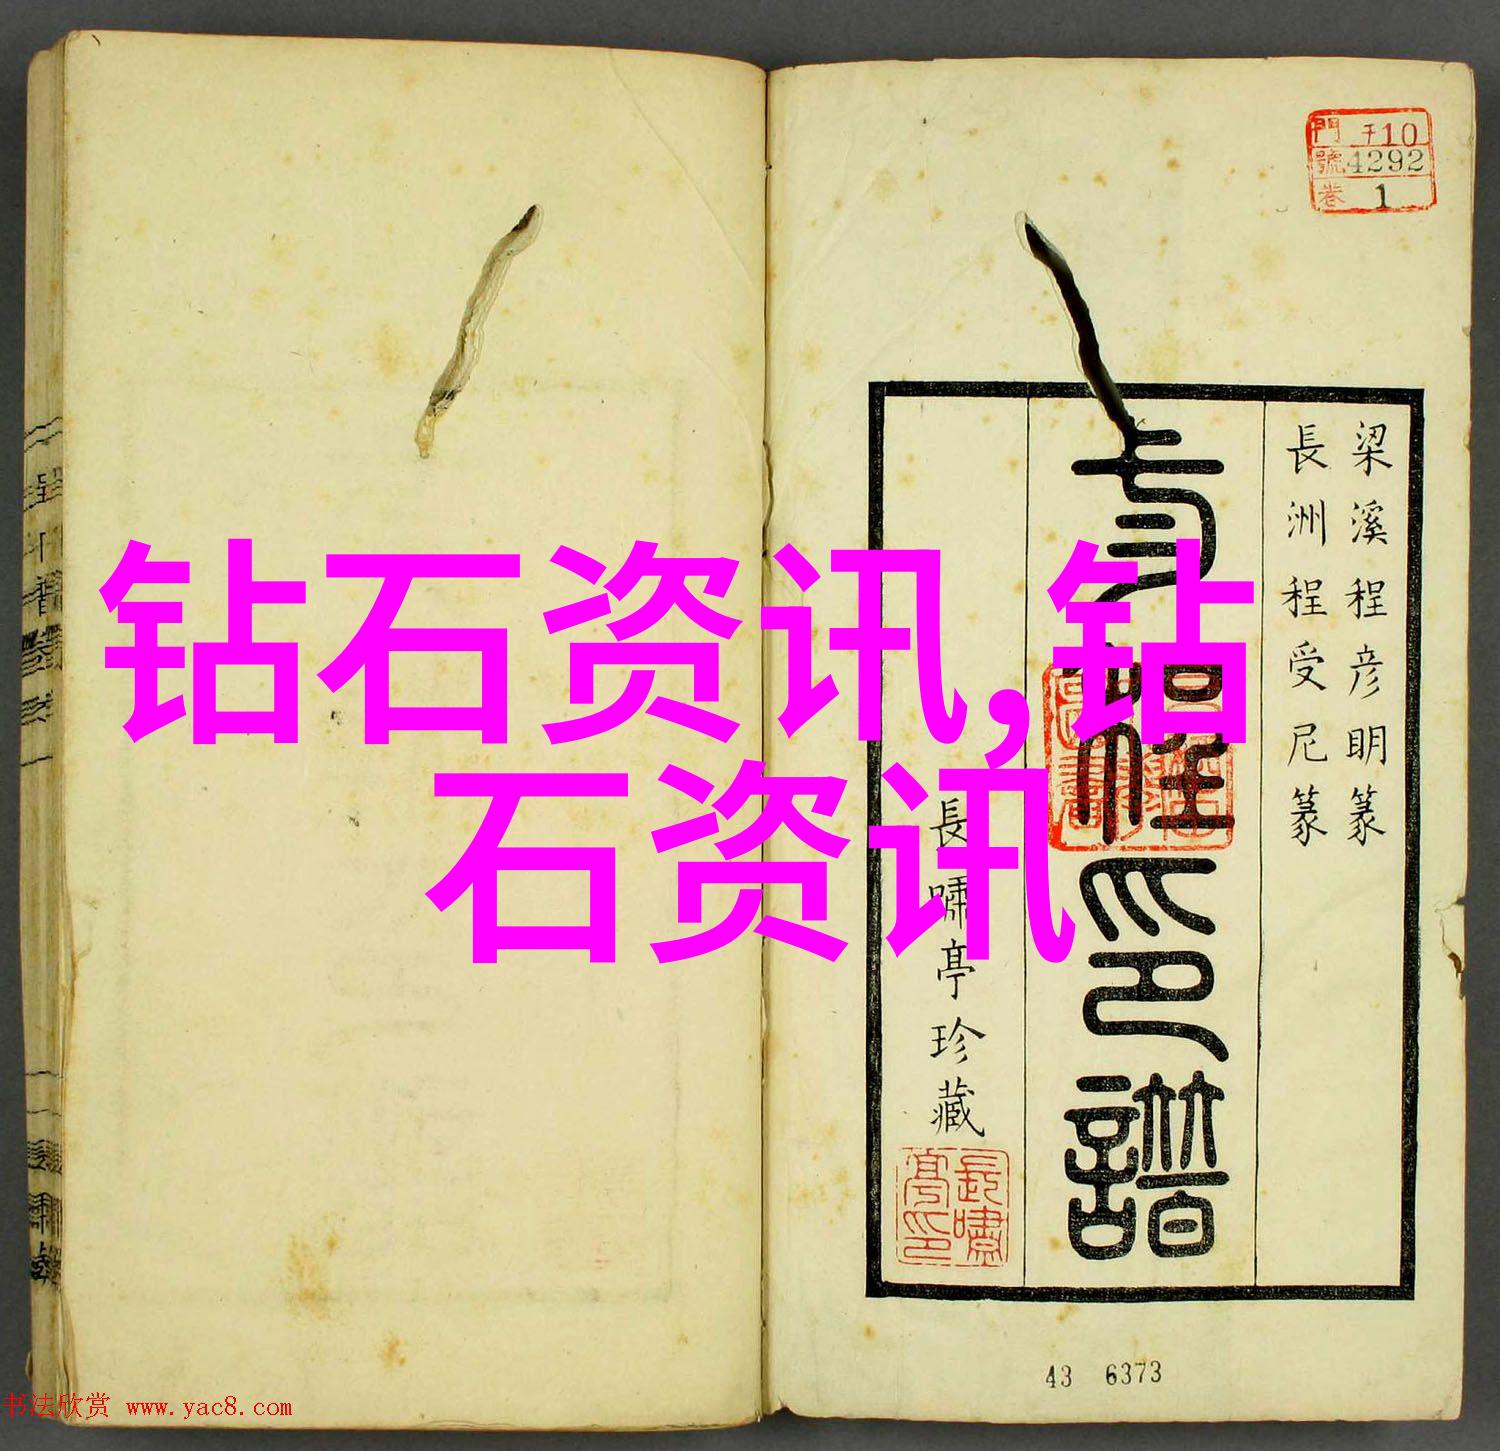 門 チ10
號 4292
卷 1
梁溪程彦明篆
長洲程受尼篆
程印譜
長嘯亭珍藏
長嘯
亭印
钻石资讯,钻
石资讯
43 6373
书法欣赏 www.yac8.com